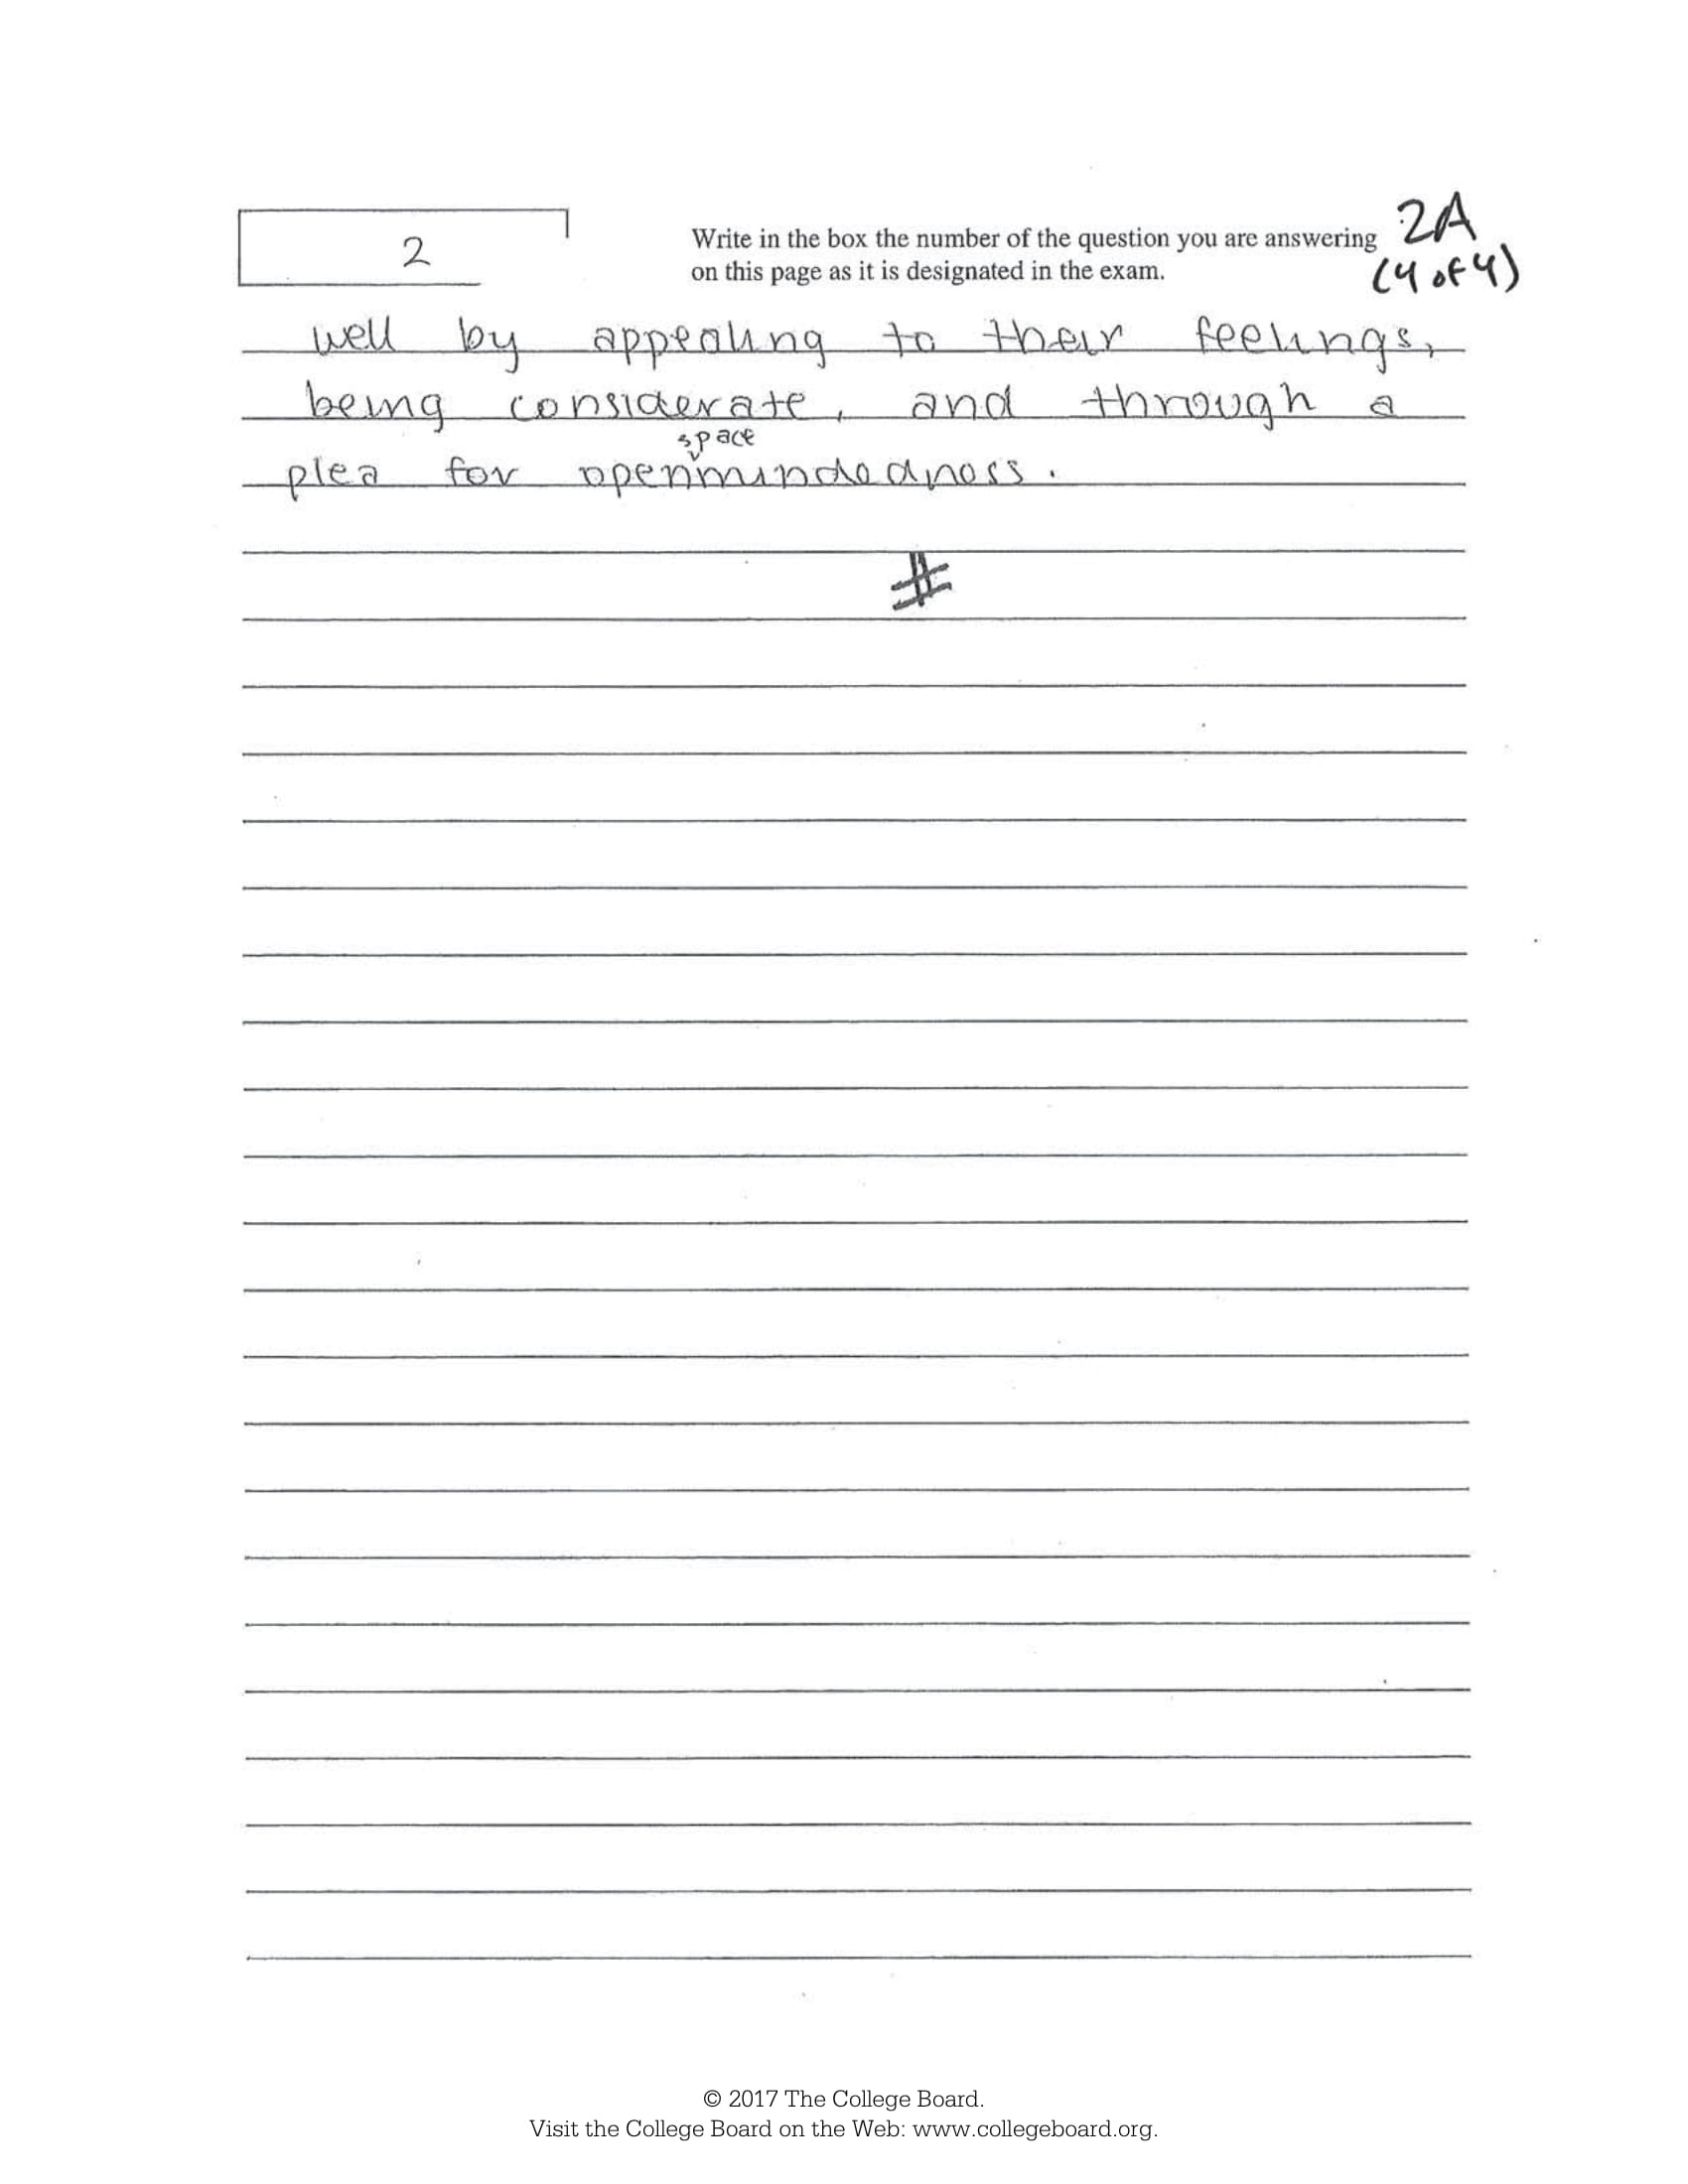 2
Write in the box the number of the question you are answering
on this page as it is designated in the exam.
2A
(4 of 4)
well by appealing to their feelings,
being considerate, and through a
space
plea for openmindedness.
#
© 2017 The College Board.
Visit the College Board on the Web: www.collegeboard.org.